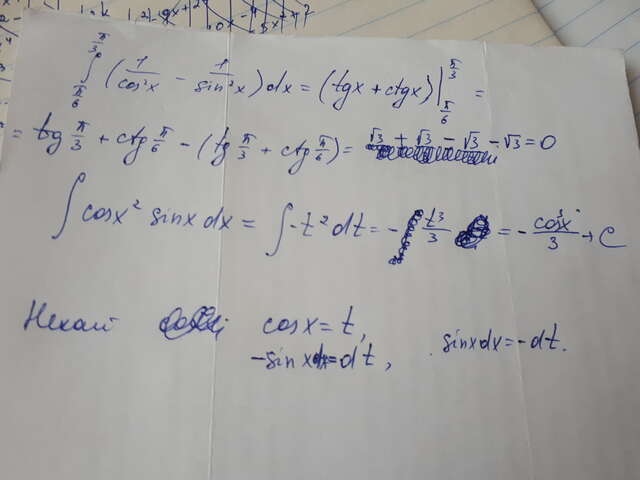 ∫_{π/6}^{π/3} (1/cos²x − 1/sin²x)dx = (tgx + ctgx)|_{π/6}^{π/3} =
= tg π/3 + ctg π/6 − (tg π/3 + ctg π/6) = √3 + √3 − √3 − √3 = 0
∫ cosx² sinx dx = ∫ -t² dt = - t³/3 = - cos³x/3 + C
Нехай cosx = t,
-sinxdx = dt, sinxdx = -dt.